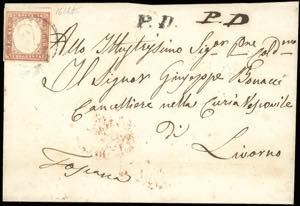 P.D. P.D
Allo Illustrissimo Sigr Pne Colmo
Il Signor Giuseppe Bonacci
Cancelliere nella Curia Vescovile
di
Livorno
Toscana